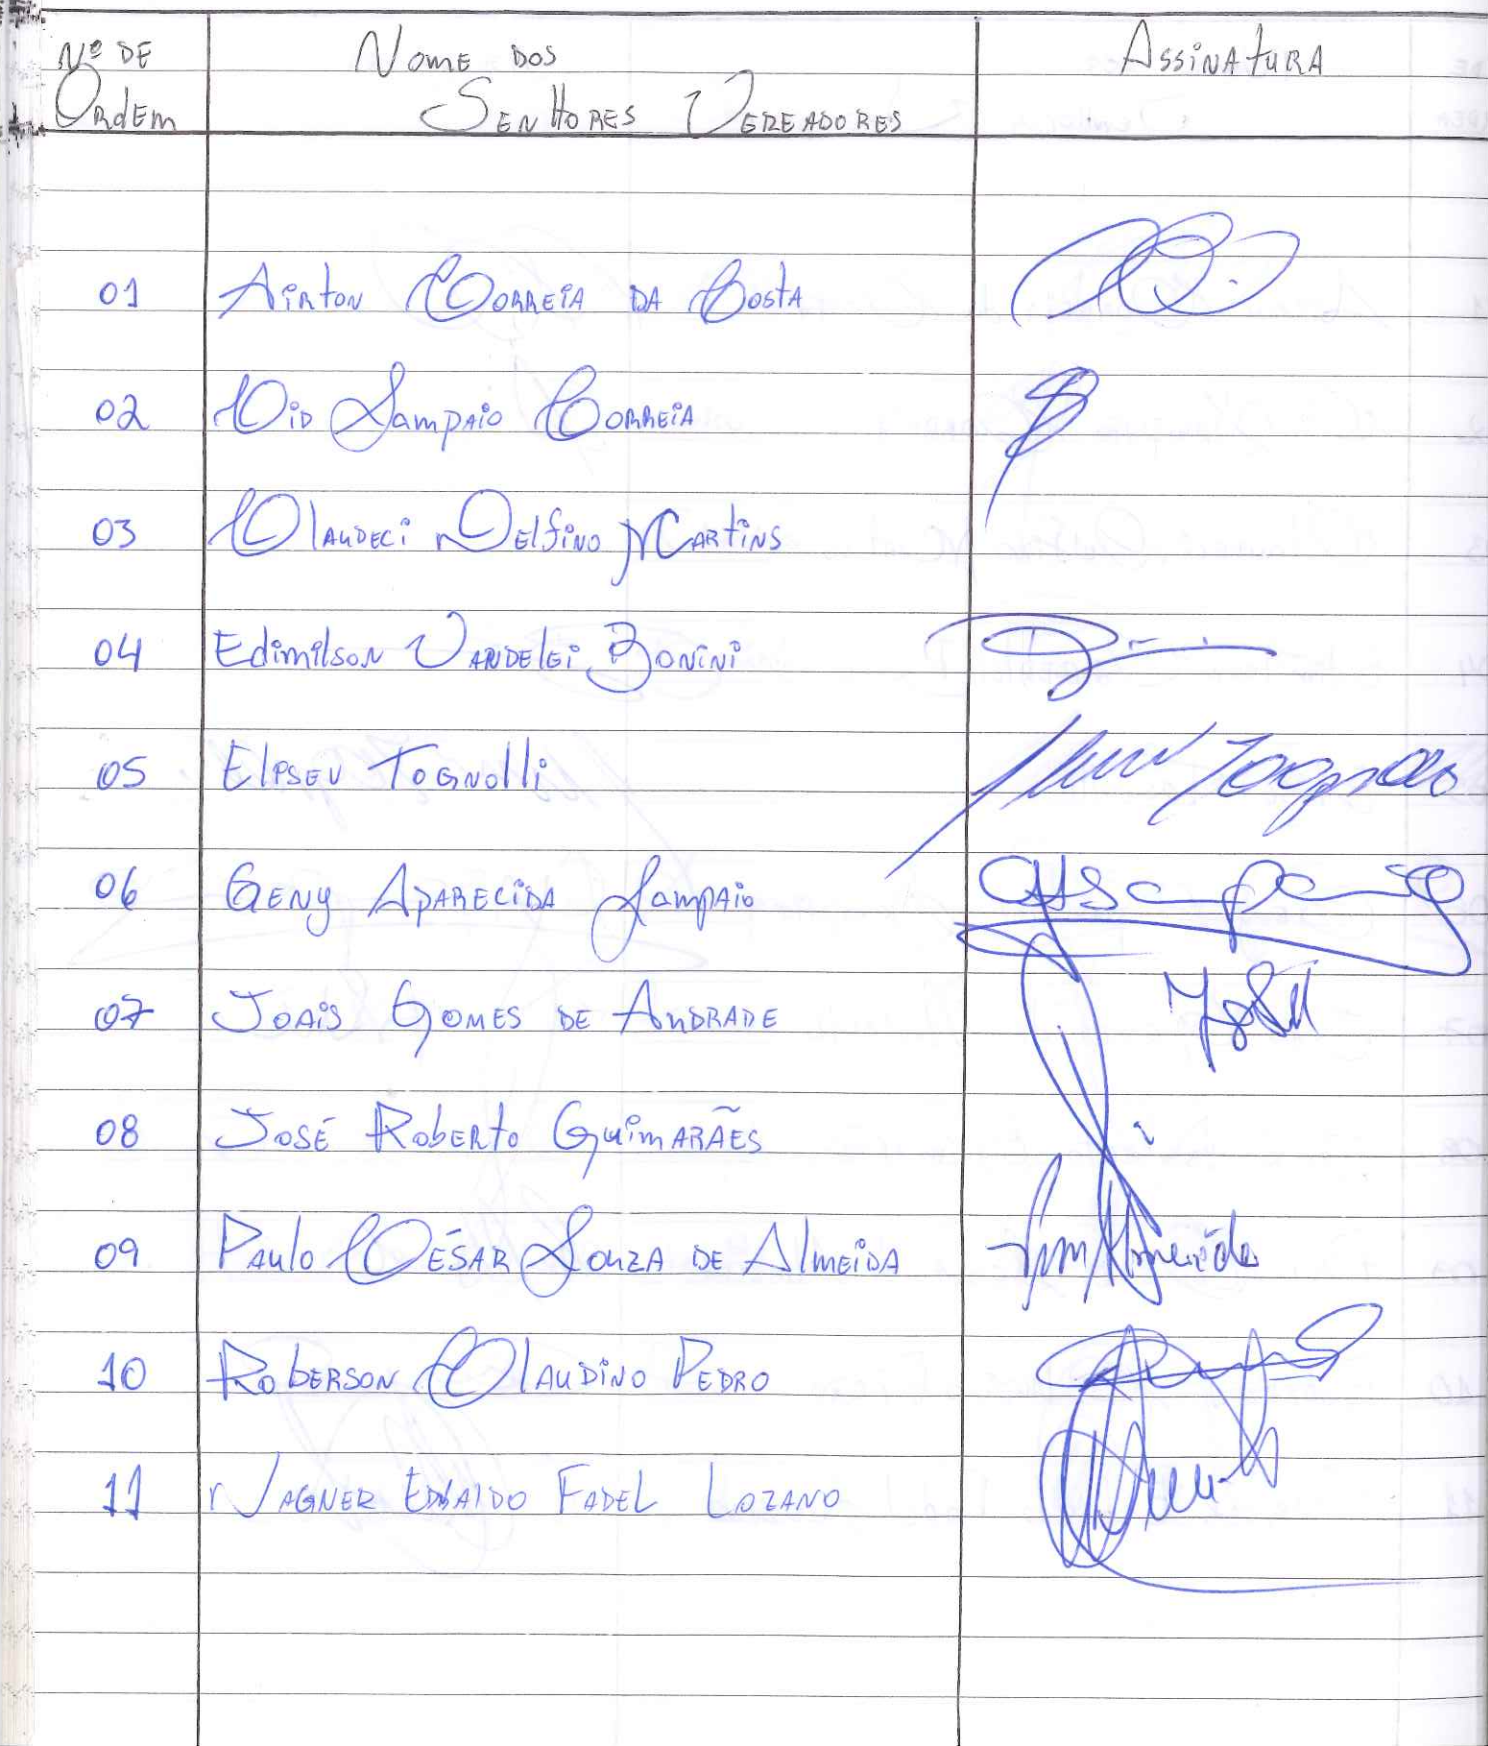 Nº DE Nome dos Assinatura
Ordem Senhores Vereadores
01 Airton Correia da Costa
02 Cid Sampaio Correia
03 Claudeci Delfino Martins
04 Edimilson Vandelei Bonini
05 Eliseu Tognolli
06 Geny Aparecida Sampaio
07 Joais Gomes de Andrade
08 José Roberto Guimarães
09 Paulo César Souza de Almeida Almeida
10 Roberson Claudino Pedro
11 Wagner Fadel Lozano